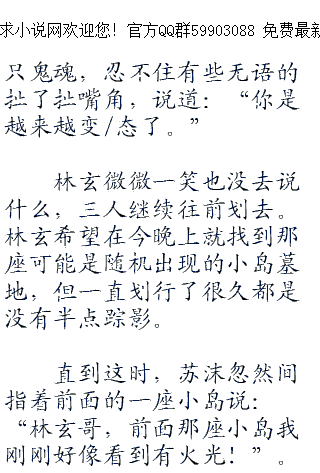 求小说网欢迎您！官方QQ群59903088 免费最新
只鬼魂，忍不住有些无语的
扯了扯嘴角，说道：“你是
越来越变/态了。”
林玄微微一笑也没去说
什么，三人继续往前划去。
林玄希望在今晚上就找到那
座可能是随机出现的小岛墓
地，但一直划行了很久都是
没有半点踪影。
直到这时，苏沫忽然间
指着前面的一座小岛说：
“林玄哥，前面那座小岛我
刚刚好像看到有火光！”。